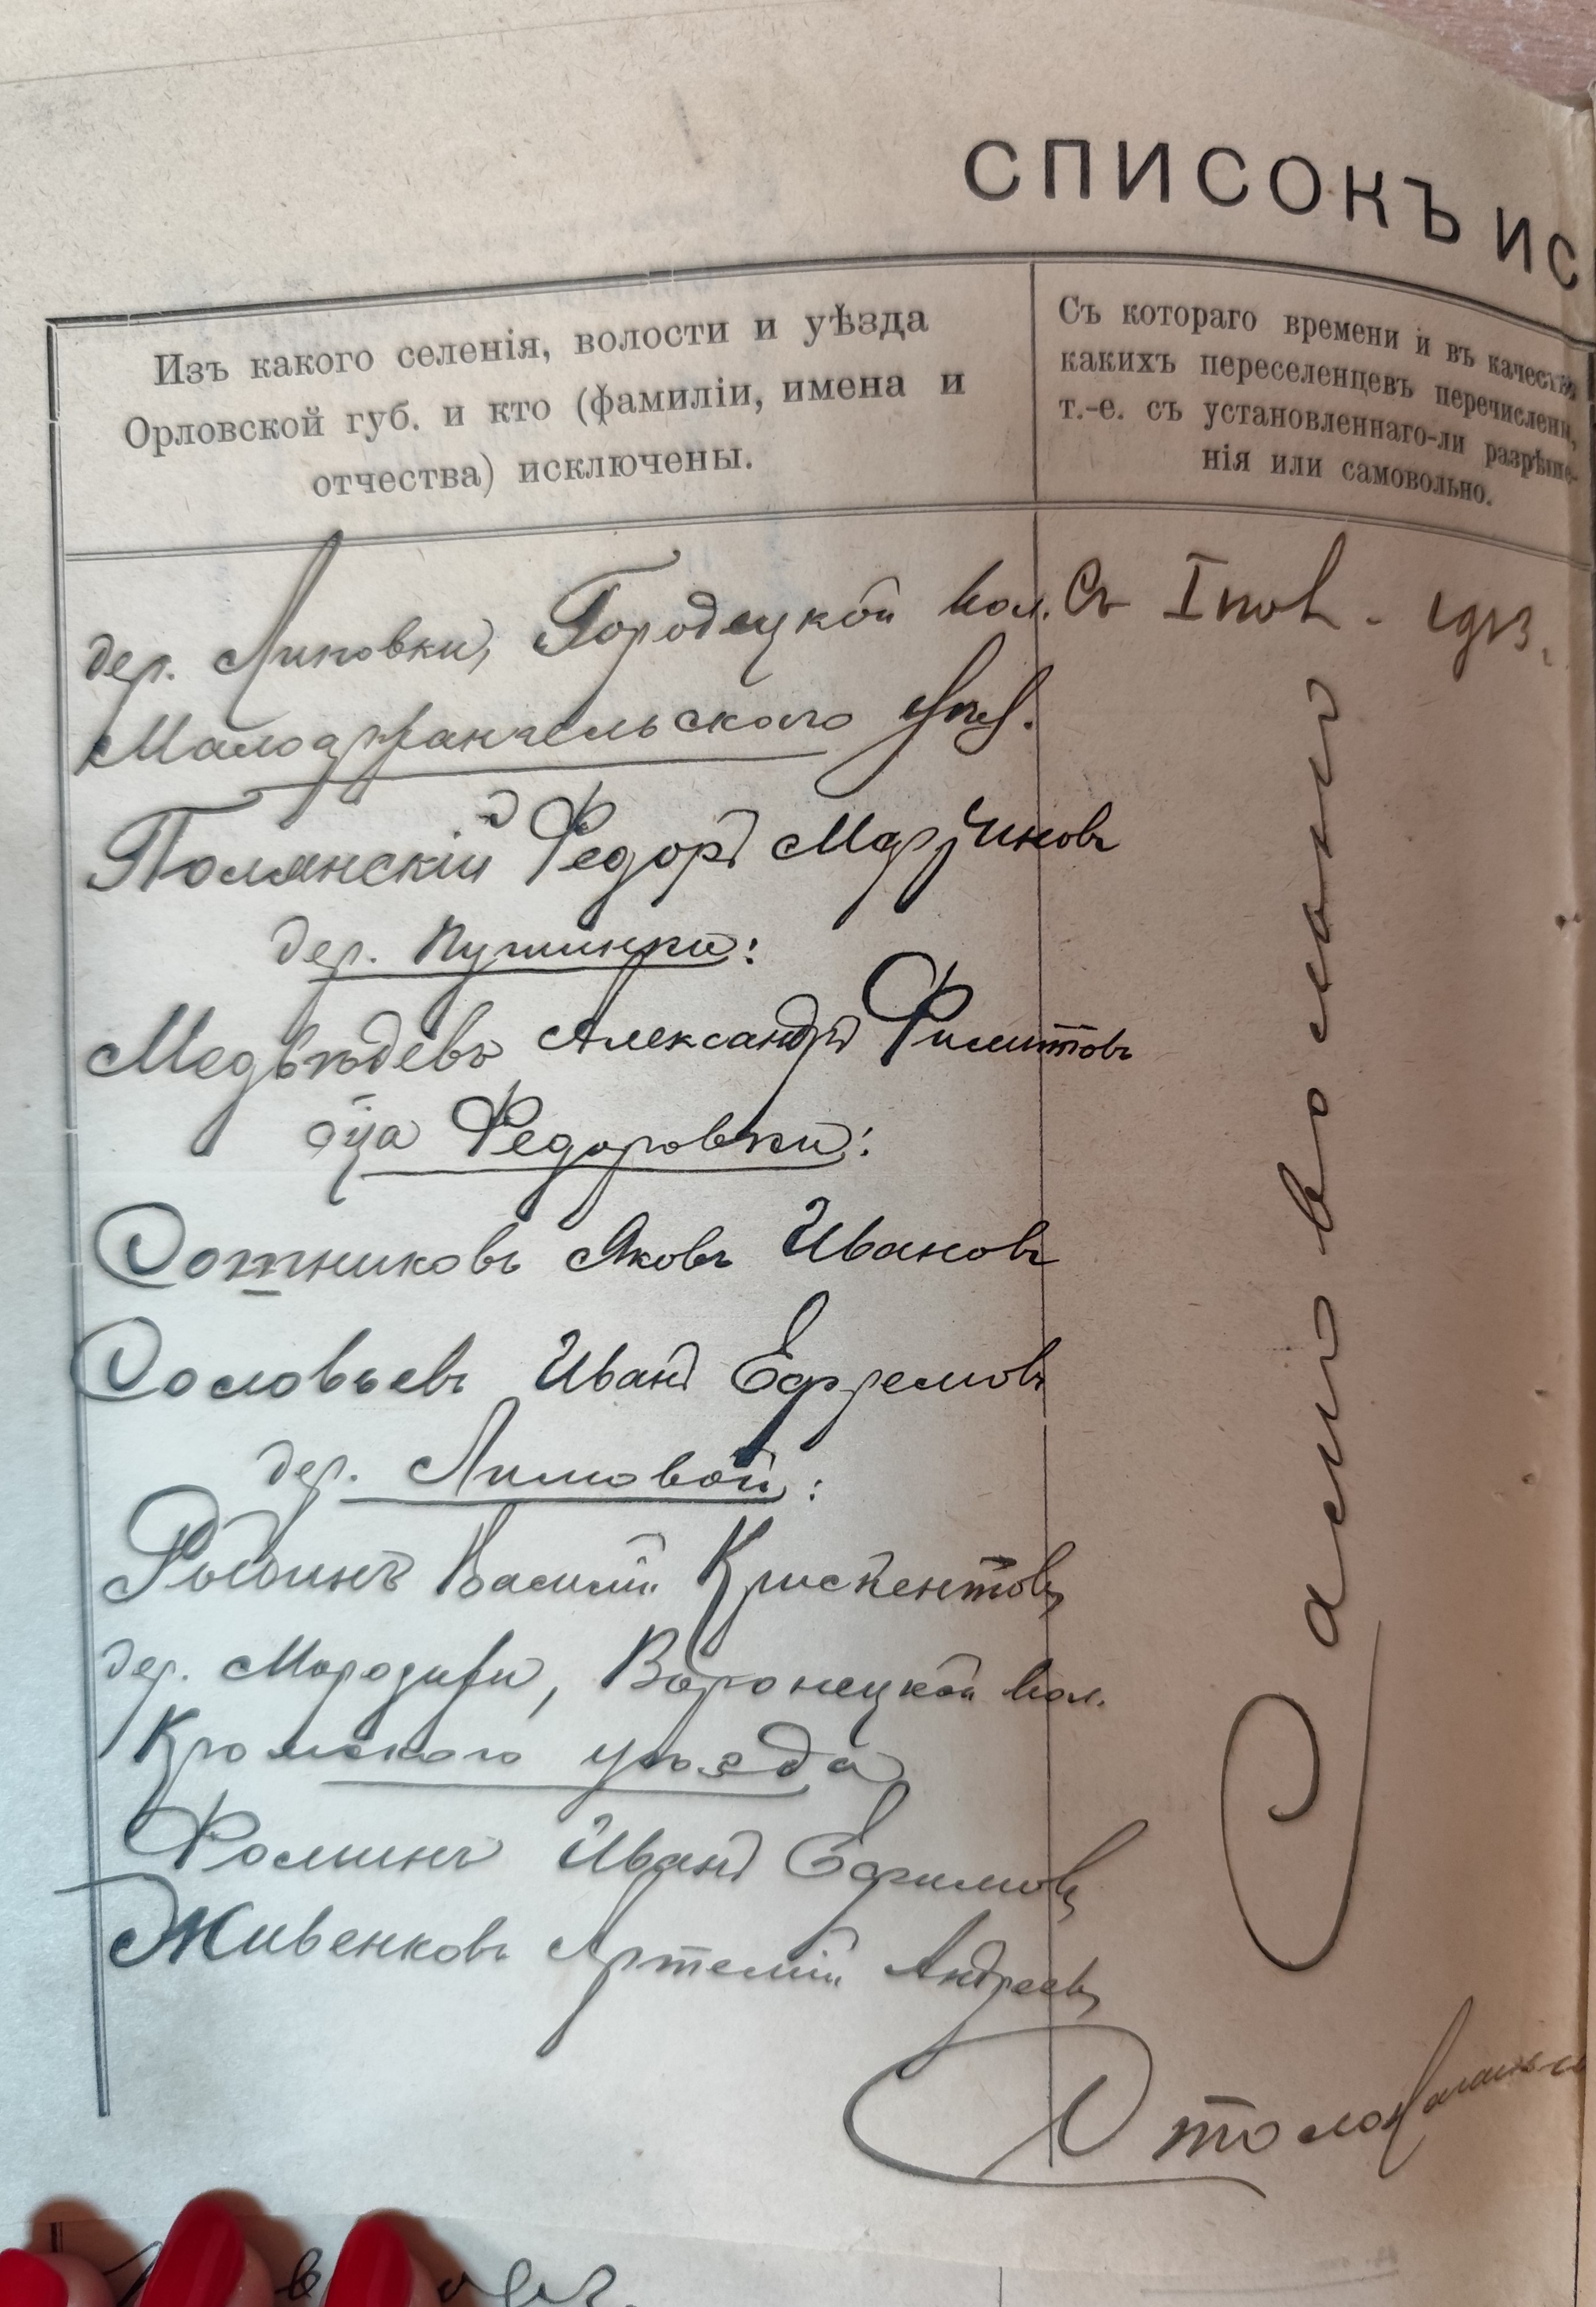 СПИСОКЪ ИС
Изъ какого селенія, волости и уѣзда
Орловской губ. и кто (фамиліи, имена и
отчества) исключены.
Съ котораго времени и въ качествѣ
какихъ переселенцевъ перечислены,
т.-е. съ установленнаго-ли разрѣше-
нія или самовольно.
дер. Липовки, Городецкой вол.
Малоархангельскаго
Полянскій Федоръ Мартиновъ
дер.
Медвѣдевъ Александръ Филиповъ
с-ца Федоровки:
Сотниковъ Яковъ Ивановъ
Соловьевъ Иванъ Ефремовъ
дер. Липовой:
Василій
дер. Воронецкой вол.
Кромского уѣзда
Фоминъ Иванъ Ефимовъ
Живенковъ Артемій Андреевъ
Съ I пол. 1913.
Самовольно